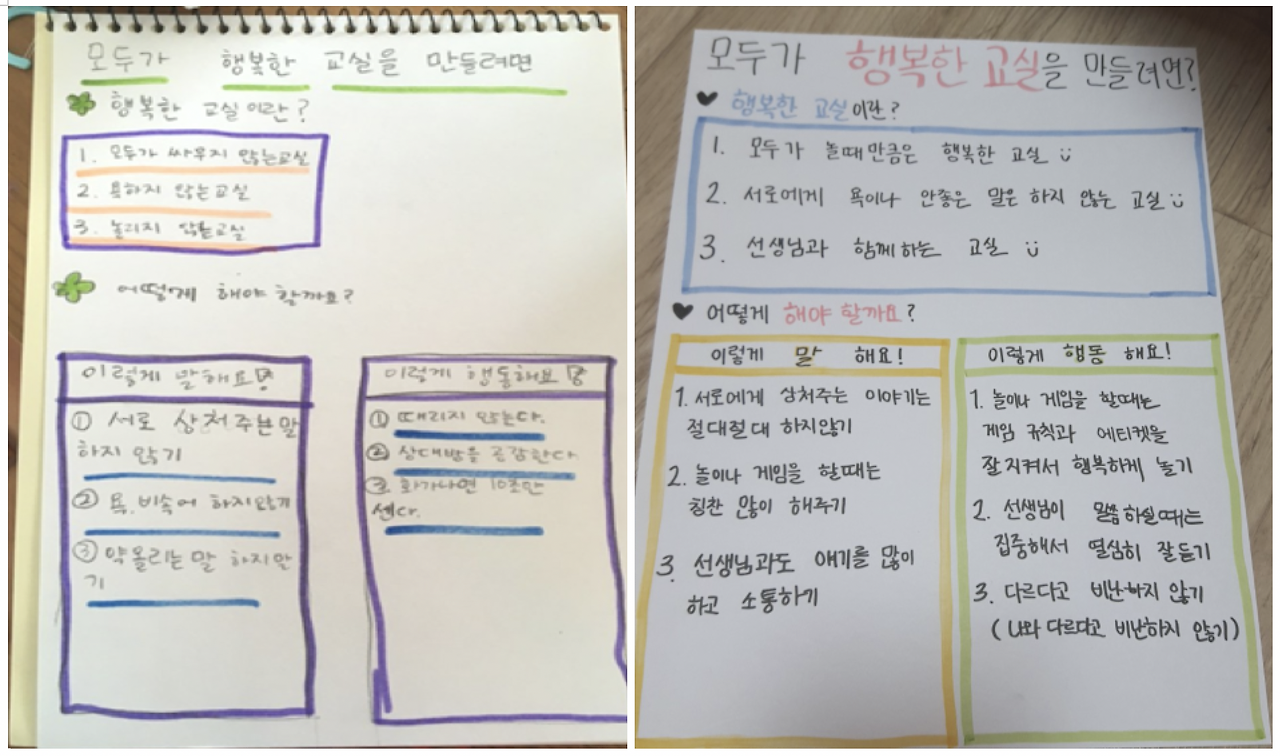 모두가 행복한 교실을 만들려면
행복한 교실이란?
1. 모두가 싸우지 않는교실
2. 욕하지 않는교실
3. 놀리지 않는교실
어떻게 해야 할까요?
이렇게 말해요!
① 서로 상처주는말
하지 않기
② 욕, 비속어 하지않기
③ 약올리는 말 하지않
기
이렇게 행동해요!
① 때리지 않는다.
② 상대방을 공감한다
③ 화가나면 10초만
센다.
모두가 행복한 교실을 만들려면?
행복한 교실이란?
1. 모두가 놀때만큼은 행복한 교실
2. 서로에게 욕이나 안좋은 말은 하지 않는 교실
3. 선생님과 함께하는 교실
어떻게 해야 할까요?
이렇게 말 해요!
1. 서로에게 상처주는 이야기는
절대절대 하지않기
2. 놀이나 게임을 할때는
칭찬 많이 해주기
3. 선생님과도 얘기를 많이
하고 소통하기
이렇게 행동 해요!
1. 놀이나 게임을 할때는
게임 규칙과 에티켓을
잘지켜서 행복하게 놀기
2. 선생님이 말씀하실때는
집중해서 열심히 잘듣기
3. 다르다고 비난하지 않기
(나와 다르다고 비난하지 않기)